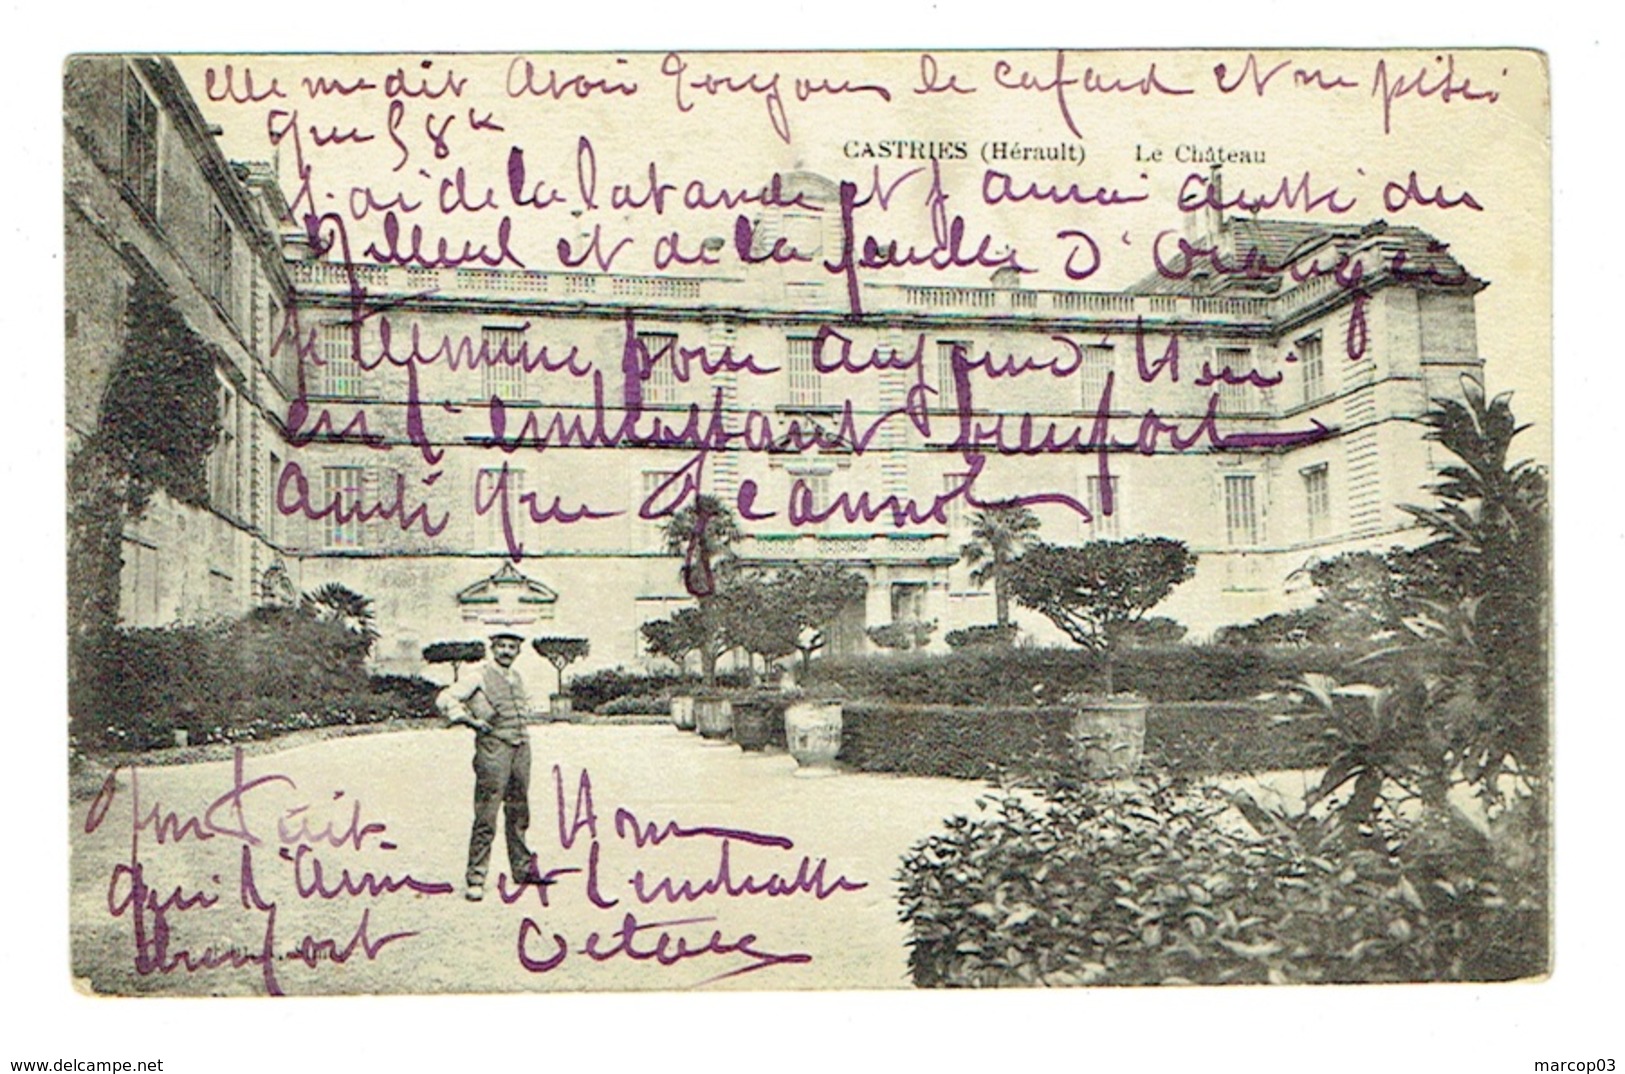 elle me dit avoir toujours le cafard et ne peser
que 58 k
CASTRIES (Hérault) Le Château
j'ai de la lavande et j'aurai aussi du
tilleul et de la feuille d'oranger
je termine pour aujourd'hui
en t'embrassant bien fort
ainsi que Jeannot
Ton petit
qui t'aime
bien fort
et t'embrasse
Octave
delcampe.net
marcop03